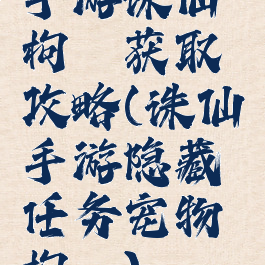 手游诛仙
枸 获取
攻略(诛仙
手游隐藏
任务宠物
枸 )